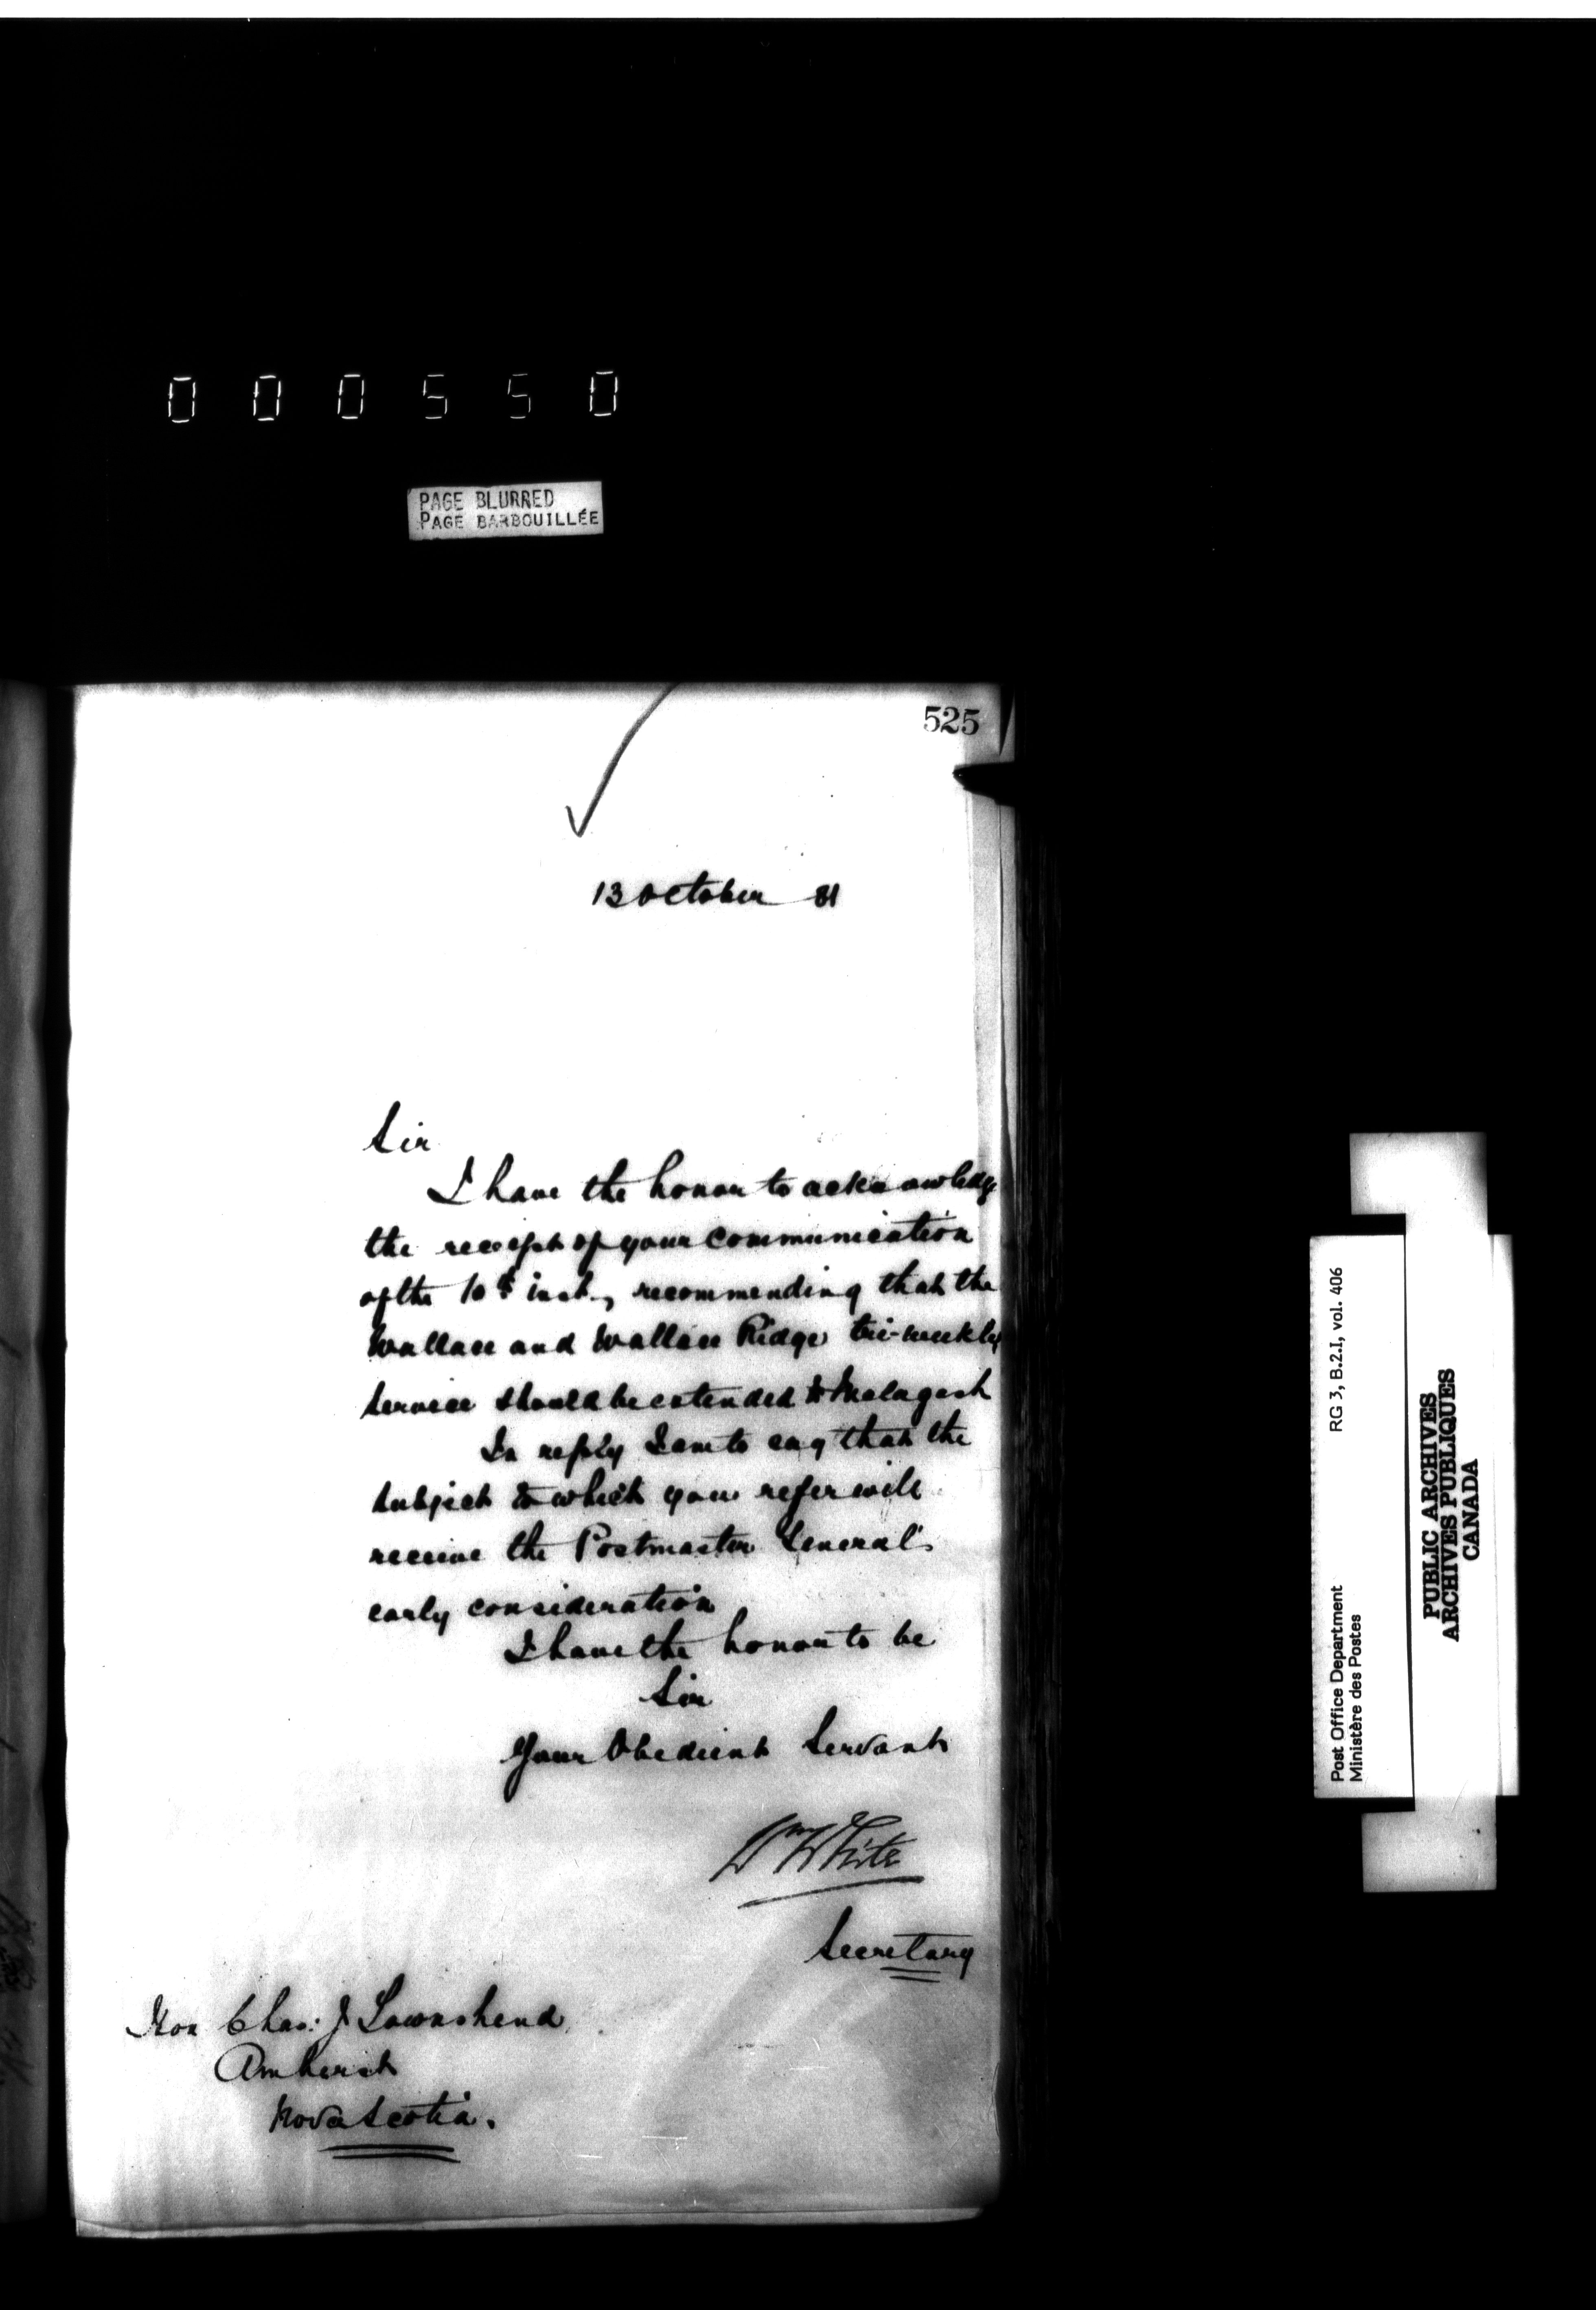 000550
PAGE BLURRED
PAGE BARBOUILLÉE
525
13 October 81
Sir
I have the honor to acknowledge
the receipt of your communication
of the 10th inst., recommending that the
Wallace and Wallace Ridge tri-weekly
Service should be extended to Malagash
In reply I am to say that the
subject to which you refer will
receive the Postmaster General's
early consideration
I have the honor to be
Sir
Your Obedient Servant
Wm White
Secretary
Hon Chas: J Townshend
Amherst
Nova Scotia.
Post Office Department RG 3, B.2.I, vol. 406
Ministère des Postes
PUBLIC ARCHIVES
ARCHIVES PUBLIQUES
CANADA